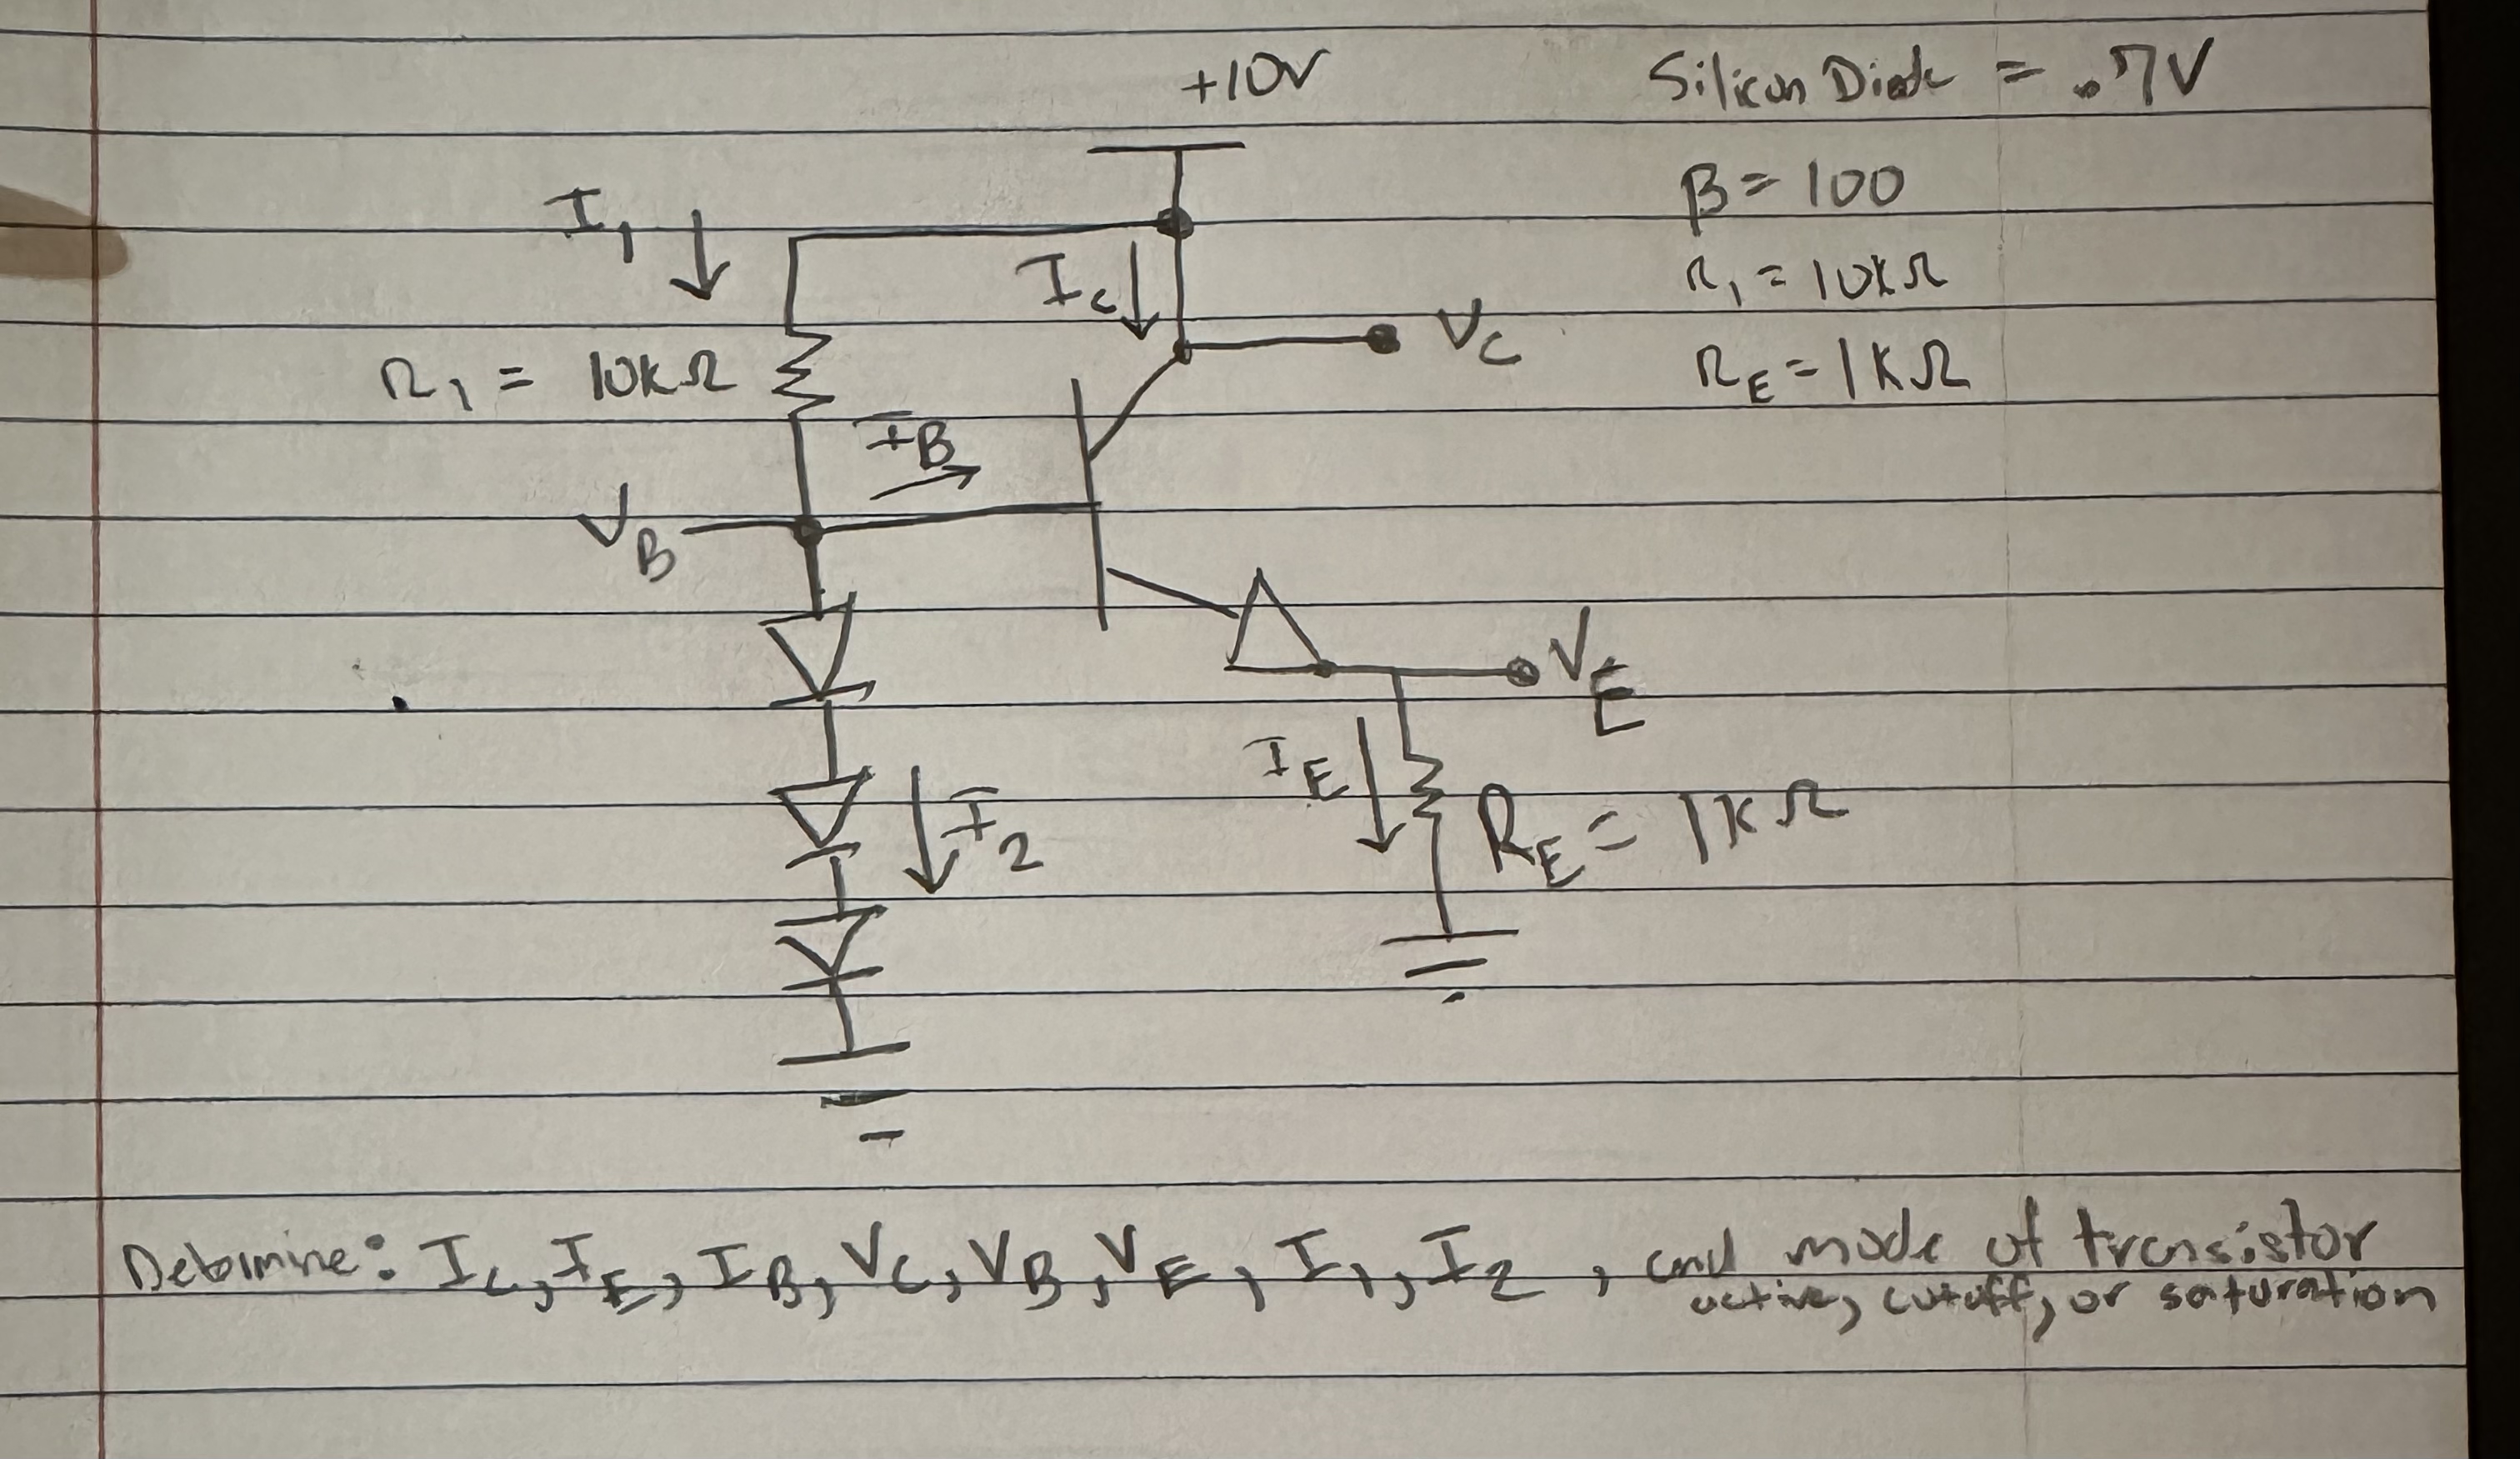 +10V
Silicon Diode = .7V
β = 100
R₁ = 10kΩ
R_E = 1kΩ
I₁
I_C
V_C
R₁ = 10kΩ
I_B
V_B
V_E
I_E
I₂
R_E = 1kΩ
Determine: I_C, I_E, I_B, V_C, V_B, V_E, I₁, I₂, and mode of transistor
active, cutoff, or saturation